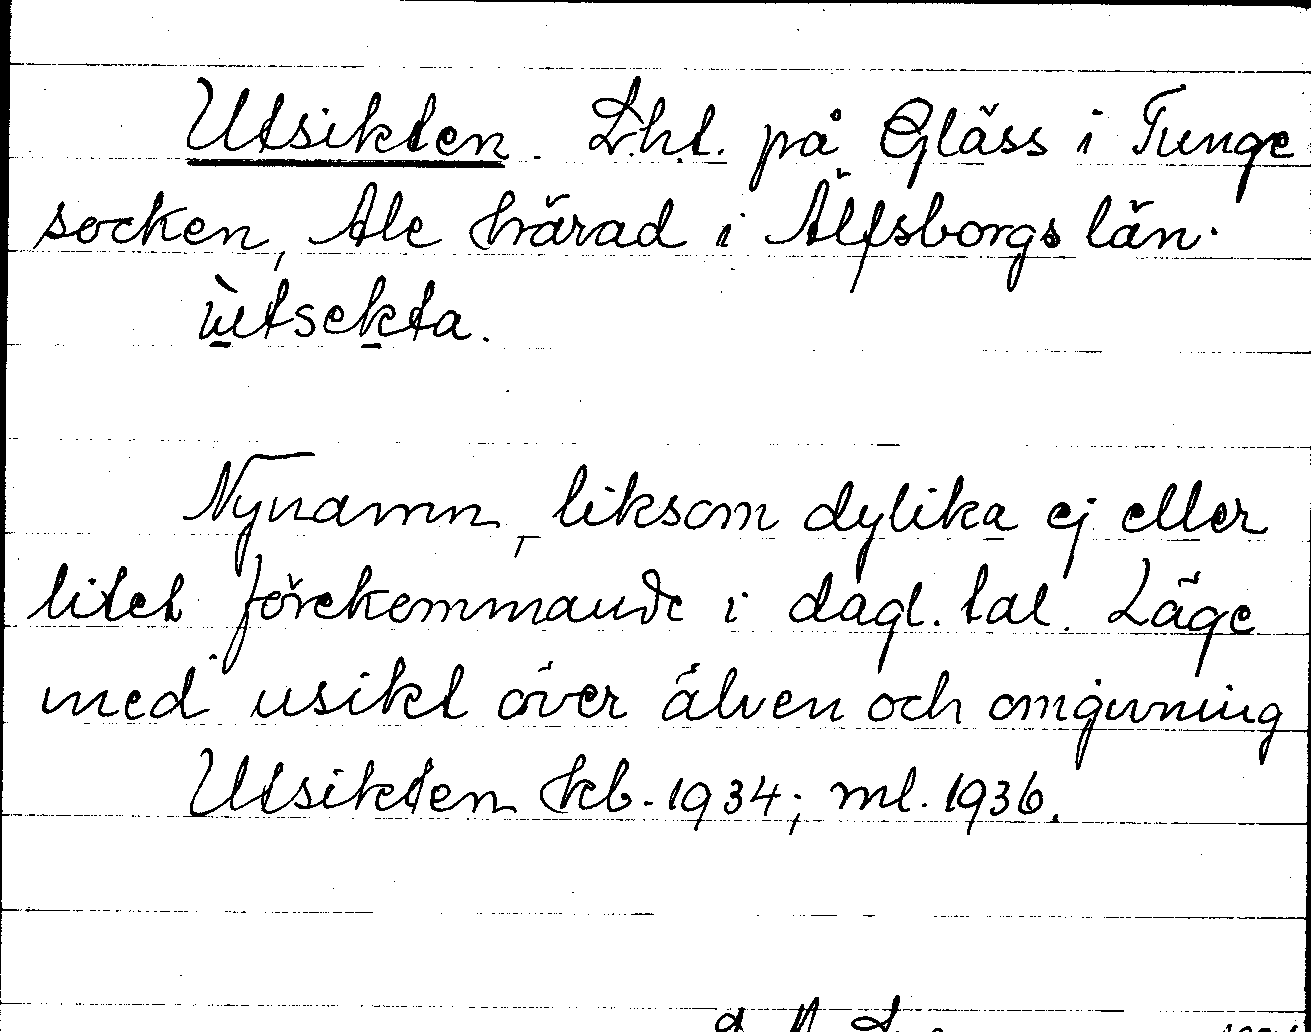 Utsikten. Lht. på Gläss i Tunge
socken, Ale härad i Älfsborgs län.
ùtsekta.
Nynamn, liksom dylika ej eller
litet förekommande i dagl. tal. Läge
med usikt över älven och omgivning
Utsikten kb. 1934; ml. 1936.